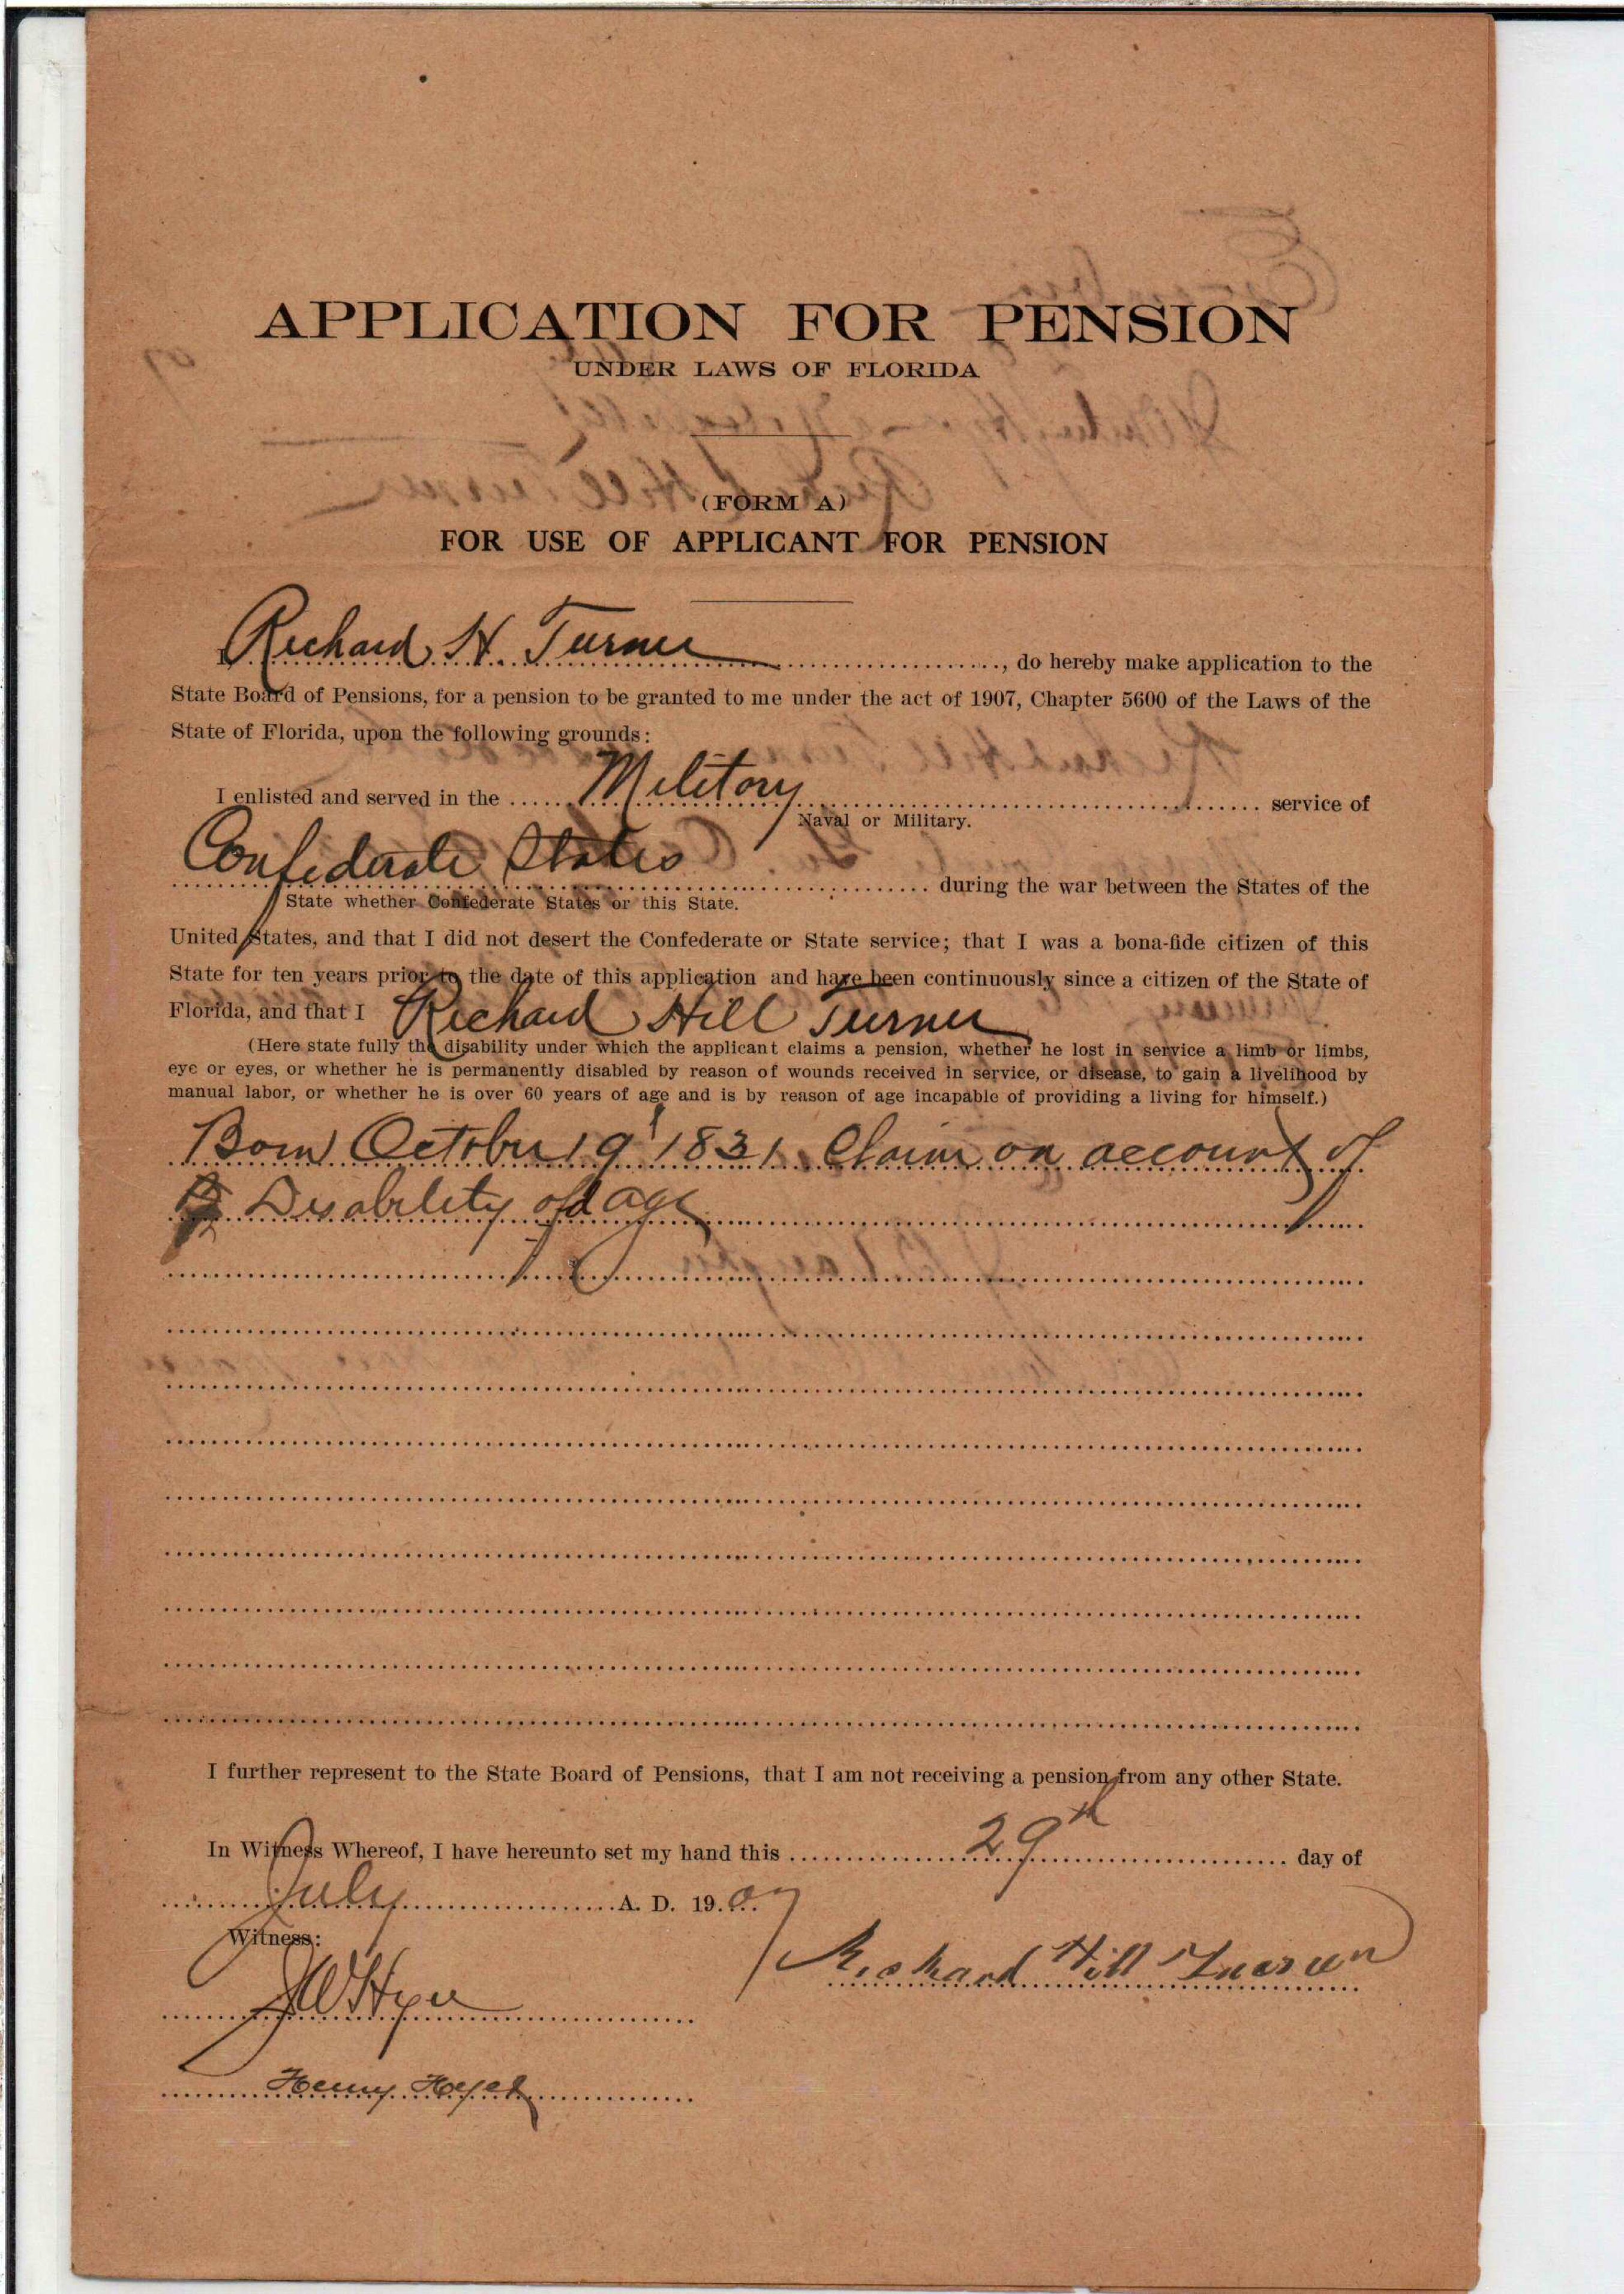 APPLICATION FOR PENSION
UNDER LAWS OF FLORIDA
(FORM A)
FOR USE OF APPLICANT FOR PENSION
I, Richard H. Turner, do hereby make application to the
State Board of Pensions, for a pension to be granted to me under the act of 1907, Chapter 5600 of the Laws of the
State of Florida, upon the following grounds:
I enlisted and served in the Military service of
Naval or Military.
Confederate States during the war between the States of the
State whether Confederate States or this State.
United States, and that I did not desert the Confederate or State service; that I was a bona-fide citizen of this
State for ten years prior to the date of this application and have been continuously since a citizen of the State of
Florida, and that I Richard Hill Turner
(Here state fully the disability under which the applicant claims a pension, whether he lost in service a limb or limbs,
eye or eyes, or whether he is permanently disabled by reason of wounds received in service, or disease, to gain a livelihood by
manual labor, or whether he is over 60 years of age and is by reason of age incapable of providing a living for himself.)
Born October 19 1831 Claim on account of
Disability old age
I further represent to the State Board of Pensions, that I am not receiving a pension from any other State.
In Witness Whereof, I have hereunto set my hand this 29th day of
July A. D. 1907
Witness:
Richard Hill Turner
Henry